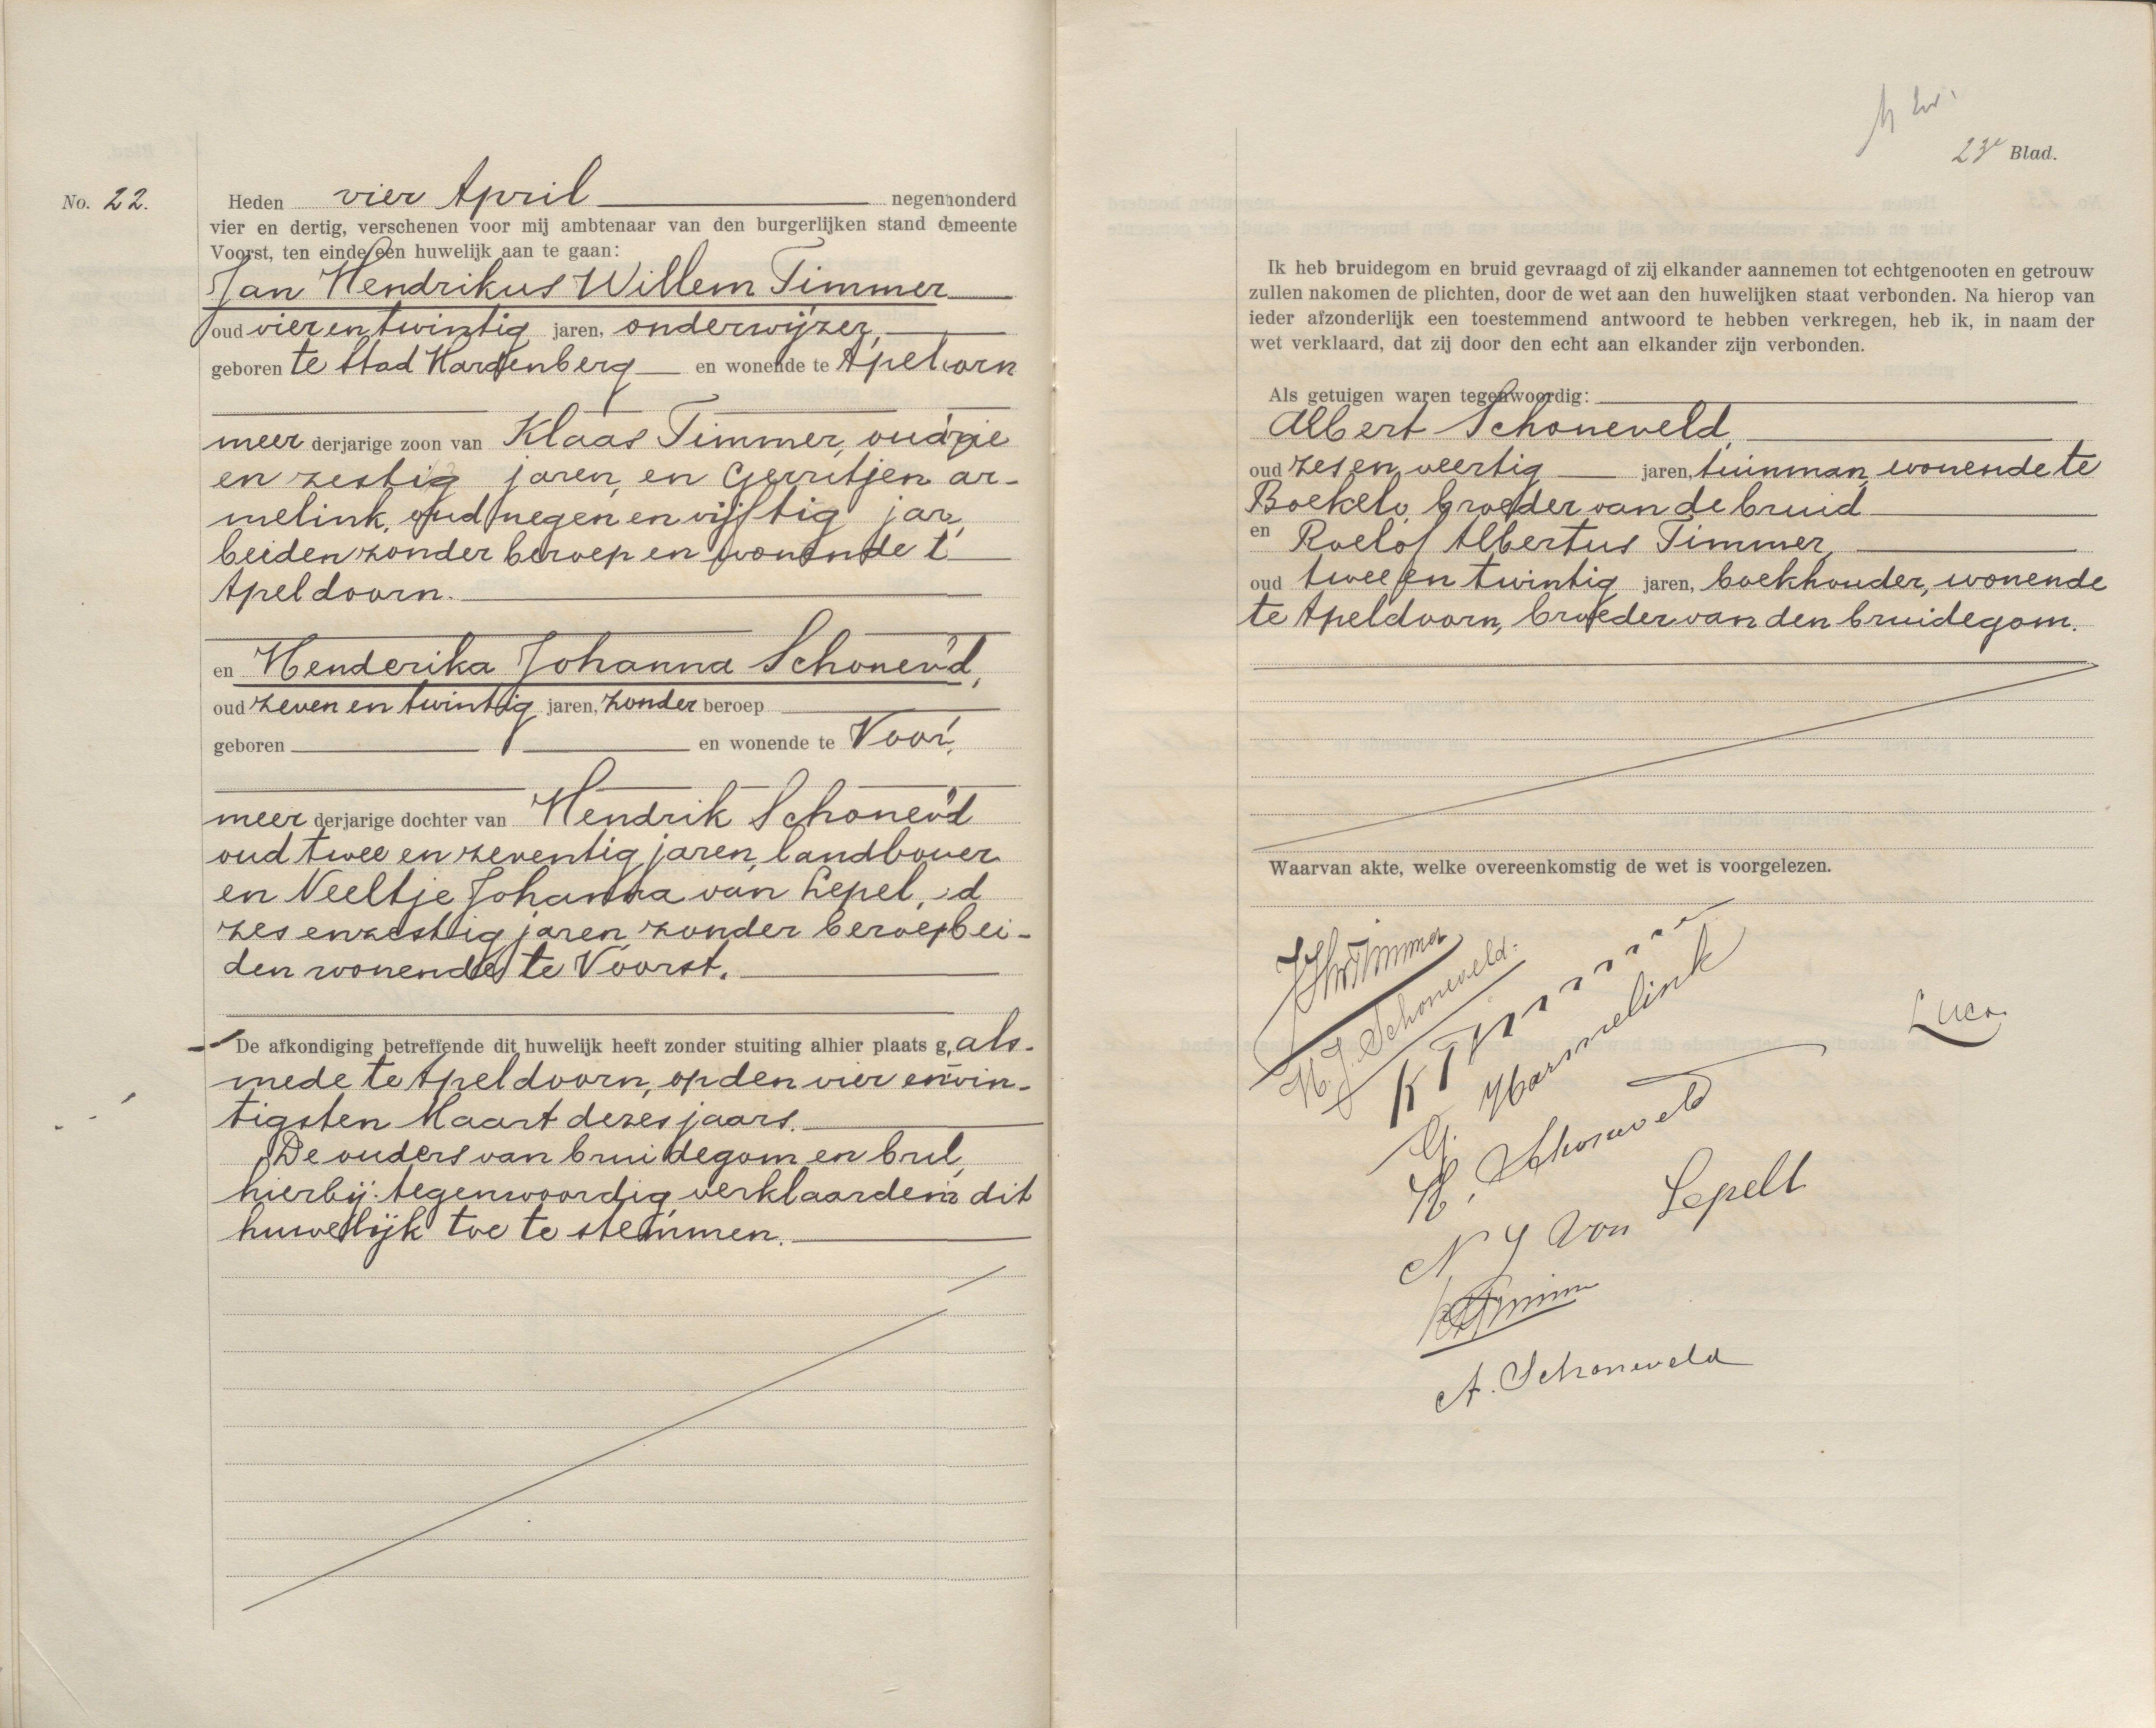 No. 22.
Heden vier April negenhonderd
vier en dertig, verschenen voor mij ambtenaar van den burgerlijken stand demeente
Voorst, ten einde een huwelijk aan te gaan:
Jan Hendrikus Willem Timmer
oud vier en twintig jaren, onderwijzer,
geboren te Stad Hardenberg en wonende te Apeldoorn
meer derjarige zoon van Klaas Timmer, oud drie
en zestig jaren, en Gerritjen ar-
melink, oud negen en vijftig jar,
beiden zonder beroep en wonende t
Apeldoorn.
en Henderika Johanna Schonev'd,
oud zeven en twintig jaren, zonder beroep
geboren en wonende te Voor,
meer derjarige dochter van Hendrik Schonev'd
oud twee en zeventig jaren, landbouer
en Neeltje Johanna van Lepel, d
zes en zestig jaren, zonder beroep bei-
den wonende te Voorst.
De afkondiging betreffende dit huwelijk heeft zonder stuiting alhier plaats g, als-
mede te Apeldoorn, op den vier en win-
tigsten Maart dezes jaars.
De ouders van bruidegom en brul,
hierbij tegenwoordig, verklaarden in dit
huwelijk toe te stemmen.
23e Blad.
Ik heb bruidegom en bruid gevraagd of zij elkander aannemen tot echtgenooten en getrouw
zullen nakomen de plichten, door de wet aan den huwelijken staat verbonden. Na hierop van
ieder afzonderlijk een toestemmend antwoord te hebben verkregen, heb ik, in naam der
wet verklaard, dat zij door den echt aan elkander zijn verbonden.
Als getuigen waren tegenwoordig:
Albert Schoneveld,
oud zes en veertig jaren, tuinman, wonende te
Boekelo, broeder van de bruid
en Roelof Albertus Timmer,
oud twee en twintig jaren, boekhouder, wonende
te Apeldoorn, broeder van den bruidegom.
Waarvan akte, welke overeenkomstig de wet is voorgelezen.
JHWTimmer
H. J. Schoneveld.
K Timmer
G. Harmelink
H. Schoneveld
N J van Lepell
A. Schoneveld